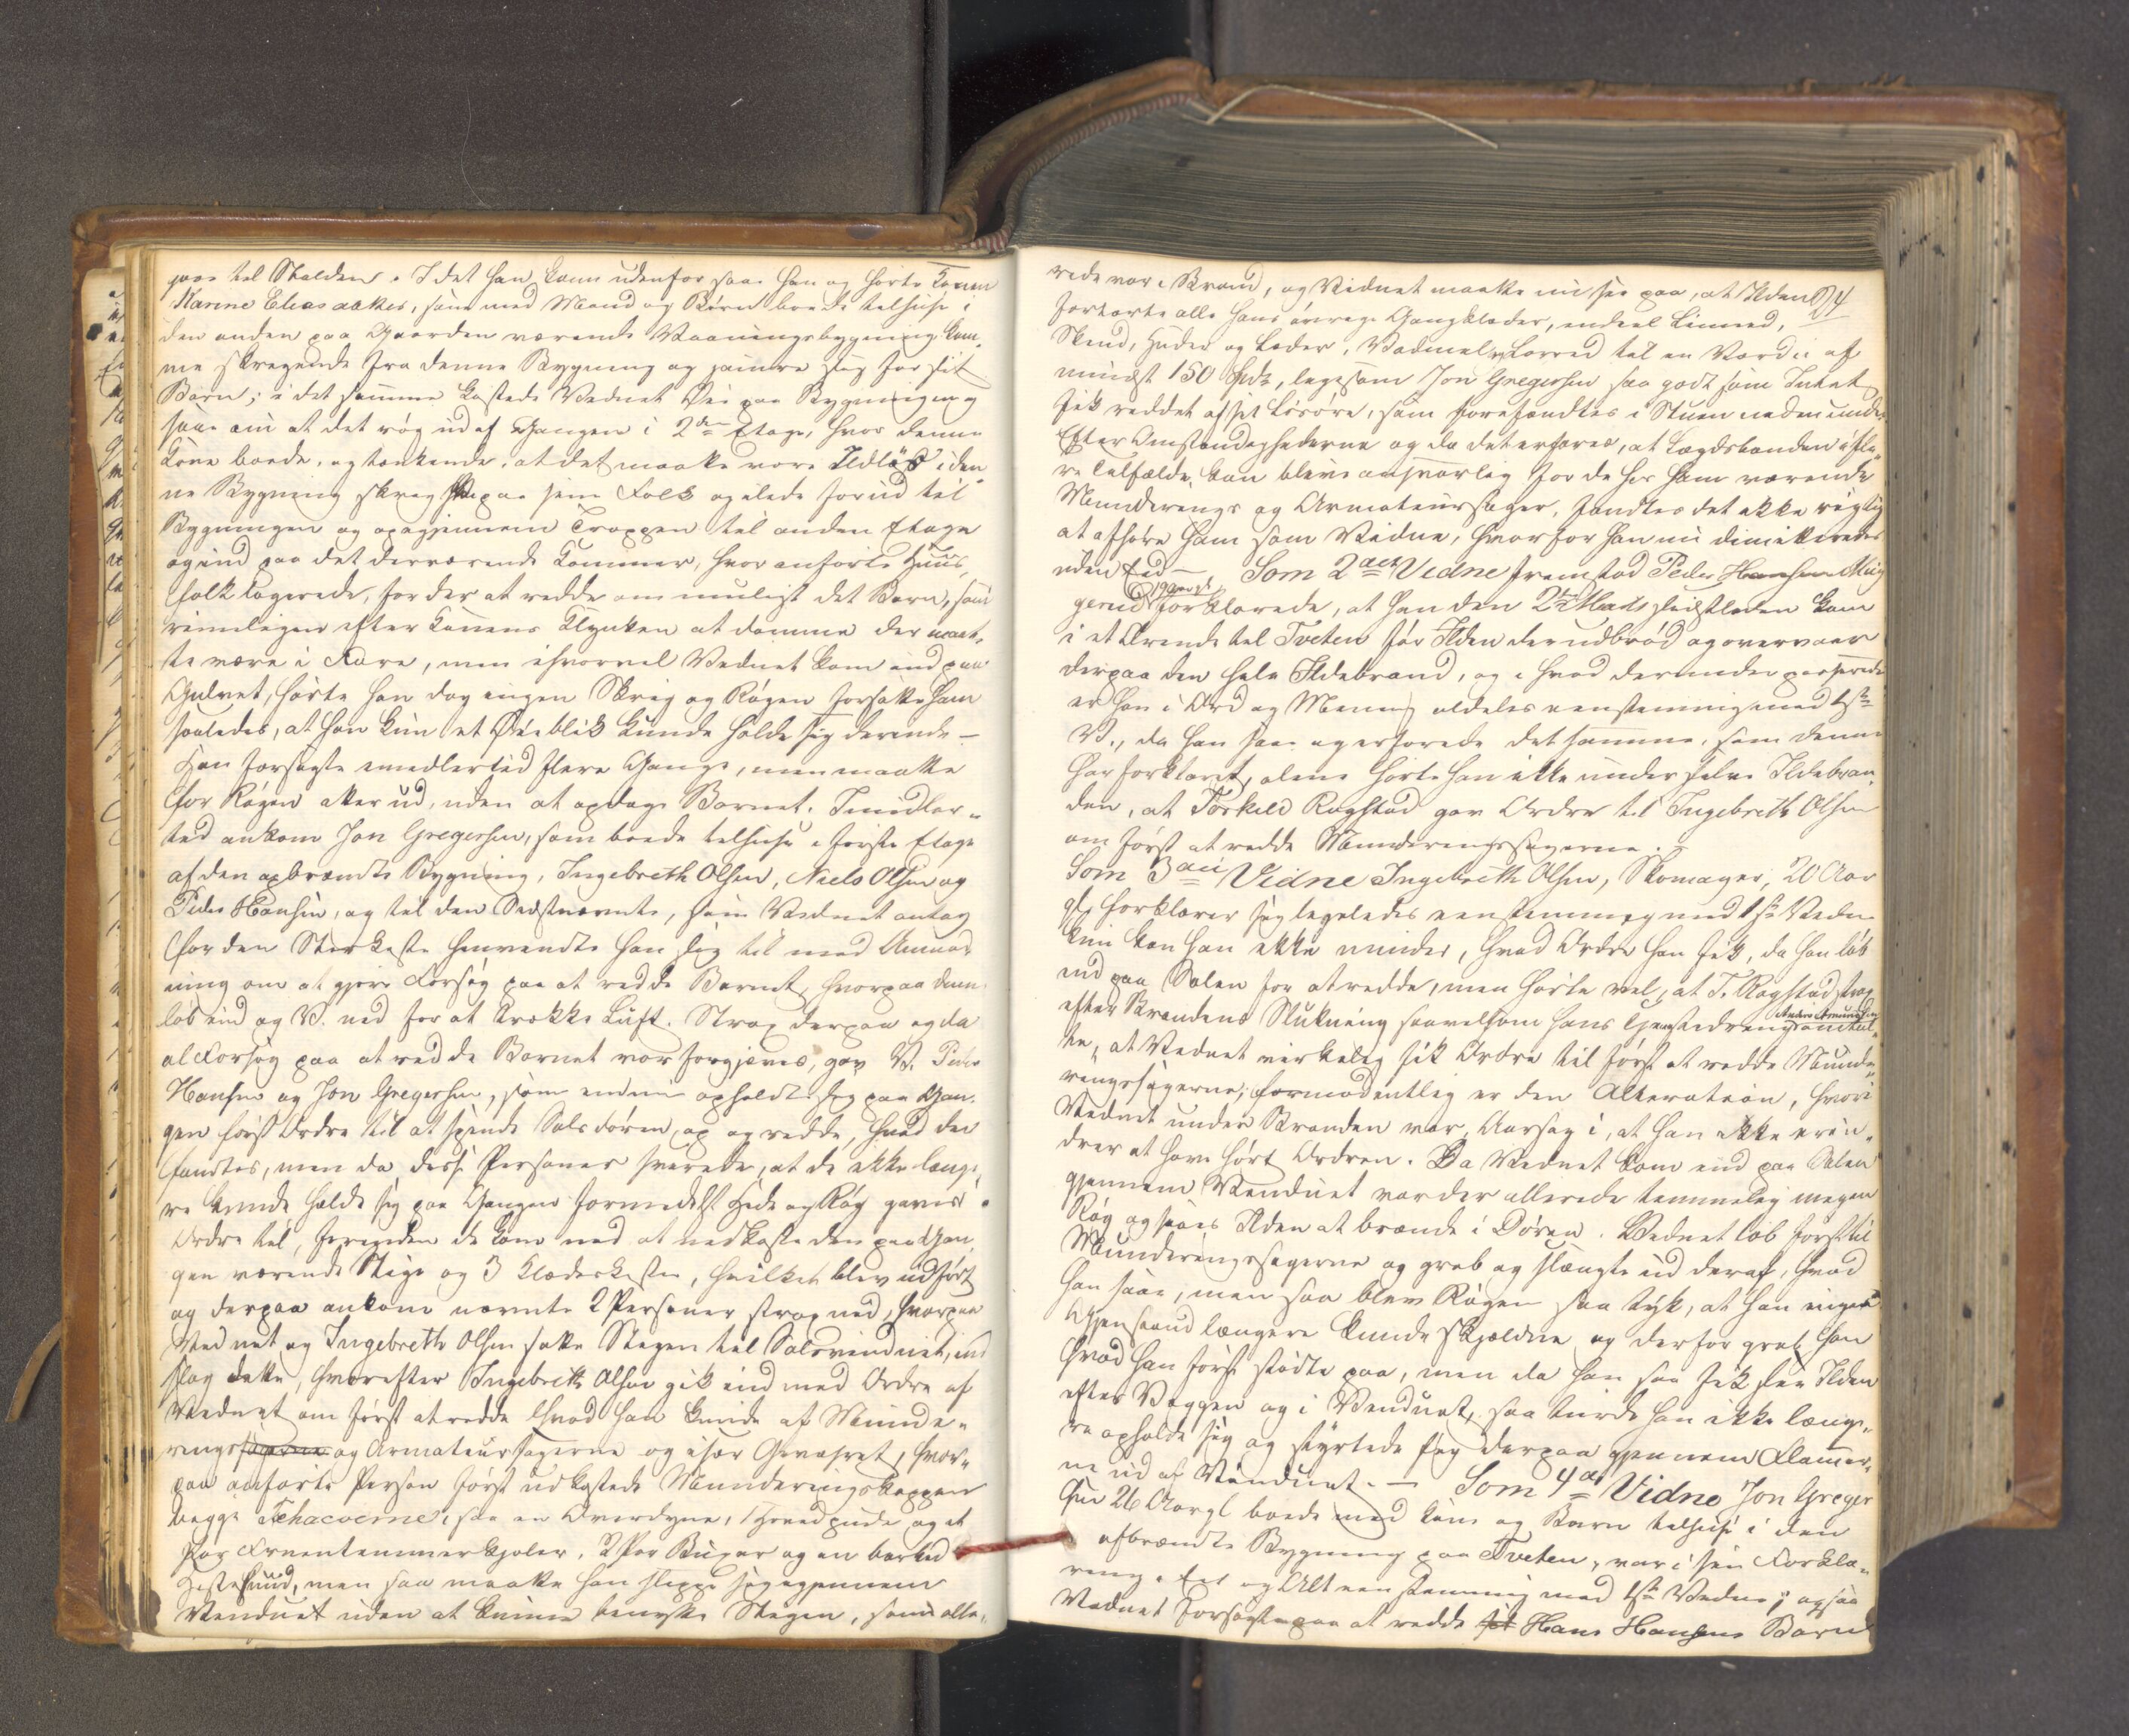 paa til Stalden. I det han kom udenfor saae han og hørte Konen
Karine Eliasdatter, som med Mand og Børn boede tilhuse i
den anden paa Gaarden værende Vaaningsbygning kom¬
me skregende fra denne Bygning og jamre sig for sit
Barn; i det samme kastede Vidnet Øie paa Bygningen og
saae nu at det røg ud af Gangen i 2den Etage, hvor denne
Kone boede, og tænkende, at det maatte være Ildløs i den¬
ne Bygning skreg paa sine Folk og ilede forud til
Bygningen og op igjennem Trappen til anden Etage
og ind paa det derværende Kammer, hvor anførte Huus¬
folk logerede, for der at redde om muligt det Barn, som
rimeligen efter Konens Klynken at dømme der maat¬
te være i Fare, men ihvorvel Vidnet kom ind paa
Gulvet, hørte han dog ingen Skrig og Røgen forsatte ham
saaledes, at han kun et Øieblik kunde holde sig derinde —
Han forsøgte imidlertid flere Gange, men maatte
for Røgen atter ud, uden at opdage Barnet. Imidler¬
tid ankom Jon Gregersen, som boede tilhuse i første Etage
af den opbrændte Bygning, Ingebreth Olsen, Niels Olsen og
Peder Hansen, og til den Sidstnævnte, som Vidnet antog
for den Stærkeste henvendte han sig til med Anmod¬
ning om at gjøre Forsøg paa at redde Barnet, hvorpaa denne
løb ind og V. ned for at trække Luft. Strax derpaa og da
al Forsøg paa at redde Barnet var forgjæves, gav V. Peder
Hansen og Jon Gregersen, som endnu opholdt sig paa Gan¬
gen først Ordre til at spænde Salsdøren op og redde, hvad der
fandtes, men da disse Personer svarede, at de ikke længe¬
re kunde holde sig paa Gangen formedelst Hede og Røg gaves
Ordre til, forinden de kom ned at nedkaste den paa Gan¬
gen værende Stige og 3 Klædeskister, hvilket blev udført
og derpaa ankom nævnte 2 Personer strax ned, hvorpaa
Vidnet og Ingebreth Olsen satte Stegen til Salsvinduet, ind
slog dette, hvorefter Ingebreth Olsen gik ind med Ordre af
Vidnet om først at redde hvad han kunde af Munde¬
rings sagerne og Armatursagerne og især Geværet, hvor¬
paa anførte Person først udkastede Munderingskappen
begge Tchacoerne, saa en Overdyne, 1 Hovedpude og et
Par Fruentimmerkjoler, 2 Par Buxer og en barked
Hestehuud, men saa maatte han slippe sig igjennem
Vinduet uden at kunne benytte Stigen, som alle¬
rede var i Brand, og Vidnet maatte nu see paa, at Ilden 94
fortærte alle hans øvrige Gangklæder, endeel Linned,
Skind, Huder og Læder, Vadmel, Lærred til en Værdie af
mindst 150 Spdr, ligesom Jon Gregersen saa godt som Intet
fik reddet af sit Løsøre, som forefandtes i Stuen nedenunder.
Efter Omstændighederne og da det erfares, at Lægdsbonden i fle¬
re Tilfælde kan blive ansvarlig for de hos ham værende
Munderings og Armatursager, fandtes det ikke rigtig
at afhøre ham som Vidne, hvorfor han nu dimitteredes
uden Eed — Som 2det Vidne fremstod Peder Hansen
gerud 19 Aar gl forklarede, at han den 2den Marts sidstleden kom
i et Ærende til Tveten før Ilden der udbrød og overvaar
derpaa den hele Ildebrand, og i hvad derunder passerede
er han i Ord og Mening aldeles eenstemmig med 1ste
V., da han saae og erfarede det samme, som denne
har forklaret, alene hørte han ikke under selve Ildebran¬
den, at Torkild Rogstad gav Ordre til Ingebreth Olsen
om først at redde Munderingssagerne. —
Som 3die Vidne Ingebreth Olsen, Skomager, 20 Aar
gl, forklarer sig ligeledes eenstemmig med 1ste Vidne
kun kan han ikke mindes, hvad Ordre han fik, da han løb
ind paa Salen for at redde, men hørte vel, at T. Rogstad strax
efter Brandens Slukning saavelsom hans Tjenestedreng Anders Amundsen omtal¬
te, at Vidnet virkelig fik Ordre til først at redde Munde¬
ringssagerne; formodentlig er den Alteration, hvori
Vidnet under Branden var, Aarsag i, at han ikke erin¬
drer at have hørt Ordren. Da Vidnet kom ind paa Salen
gjennem Vinduet var der allerede temmelig megen
Røg og saaes Ilden at brænde i Døren. Vidnet løb først til
Munderingssagerne og greb og slængte ud deraf, hvad
han saae, men saa blev Røgen saa tyk, at han ingen
Gjenstand længere kunde skjældne og derfor greb han
hvad han først stødte paa, men da han saa fik see Ilden
efter Væggen og i Vinduet, saa turde han ikke længe¬
re opholde sig og styrtede sig derpaa gjennem Flammer¬
ne ud af Vinduet. — Som 4de Vidne Jon Greger
sen 26 Aar gl boede med Kone og Barn tilhuse i den
afbrændte Bygning paa Tveten, var i sin Forkla¬
ring i Eet og Alt eenstemmig med 1ste Vidne; ogsaa
Vidnet forsøgte paa at redde sit Hans Hansens Barn